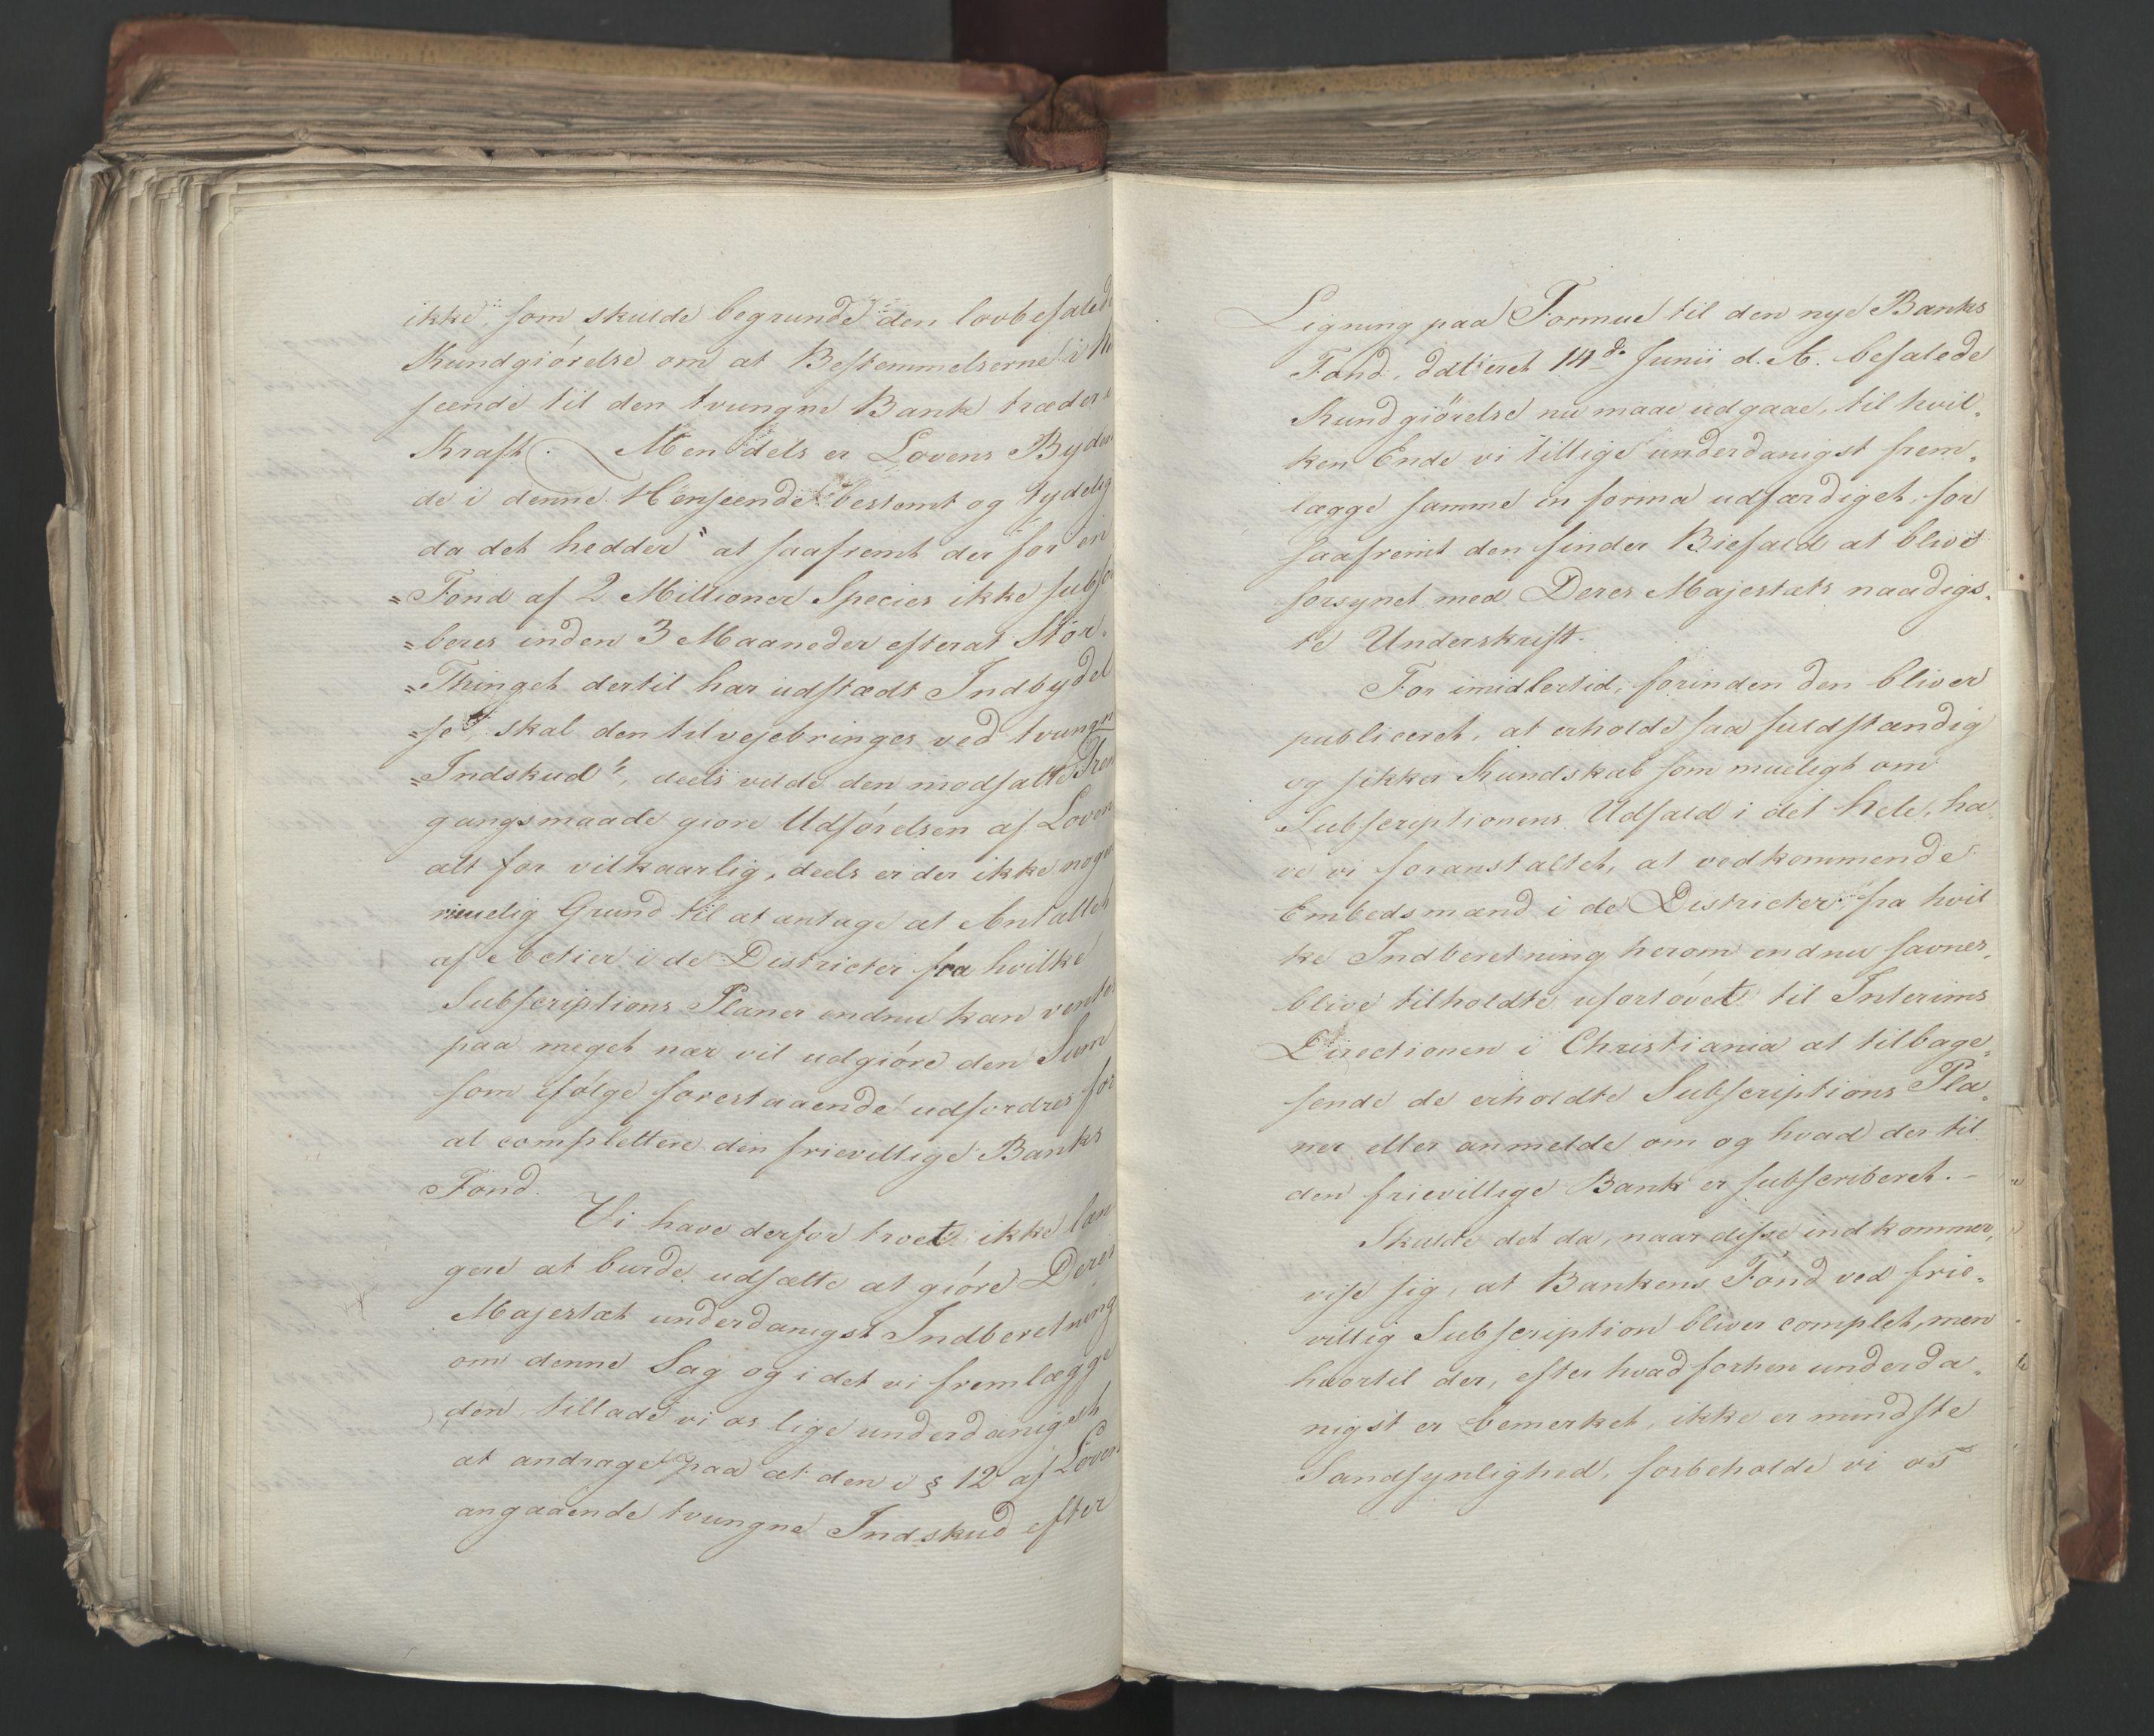 ikke, som skulde begrunde den lovbefalede
Kundgiörelse om at Bestemmelserne i
seende til den tvungne Bank træder i
Kraft. Men dels er Lovens Byden
de i denne Henseende bestemt og tydelig
da det hedder "at saafremt der for en
"Fond af 2 Millioner Species ikke subscr
"beres inden 3 Maaneder efterat Stor-
"Thinget dertil har udstædt Indbydel
"se, skal den tilvejebringes ved tvungne
"Indskud", deels vilde den modsatte Frem
gangsmaade giöre Udförelsen af Loven
alt for vilkaarlig, deels er der ikke nogen
rimelig Grund til at antage at Antallet
af Actier i de Districter fra hvilke
Subscriptions Planer endnu kan ventes
paa meget nær vil udgiöre den Sum
som ifölge forestaaende udfordres for
at complettere den frievillige Banks
Fond.
Vi have derfor troet ikke læn
gere at burde udsætte at giöre Deres
Majestæt underdanigst Indberetning
om denne Sag og i det vi fremlægge
den, tillade vi os lige underdanigst
at andrage paa at den i § 12 af Loven
angaaende tvungne Indskud efter
Ligning paa Formue til den nye Banks
Fond, datteret 14de Junii d. A. befalede
Kundgiörelse nu maae udgaae, til hvil-
ken Ende vi tillige underdanigst frem-
lægge samme in forma udfærdiget, for
saafremt den finder Biefald at blive
forsynet med Deres Majestæts naadigs-
te Underskrift.
For imidlertid, forinden den bliver
publiceret, at erholde saa fuldstændig
og sikker Kundskab som mueligt om
Subscriptionens Udfald i det hele, ha
ve vi foranstaltet, at vedkommende
Embedsmænd i de Districter fra hvil
ke Indberetning herom endnu savnes,
blive tilholdte ufortövet til Interims
Directionen i Christiania at tilbage-
sende de erholdte Subscriptions Pla-
ner eller anmelde om og hvad der til
den frievillige Bank er subscriberet. -
Skulde det da, naar disse indkommer,
vise sig, at Bankens Fond ved frie-
villig Subscription bliver complet, men
hvortil der, efter hvad forhen underda-
nigst er bemerket, ikke er mindste
Sandsynlighed, forbeholde vi os